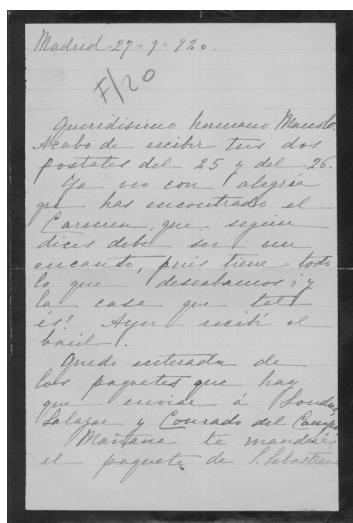 Madrid 27-9-920.
F/20
Queridísimo hermano Manolo.
Acabo de recibir tus dos
postales del 25 y del 26.
Ya veo con alegría
que has encontrado el
Carmen, que según
dices debe ser un
encanto, pués tiene todo
lo que deseabamos; y
la casa que tal
és? Ayer recibí el
baúl.
Quedo enterada de
los paquetes que hay
que enviar á
Salazar y Conrado del Campo
Mañana te mandaré
el paquete de S. Sebastian